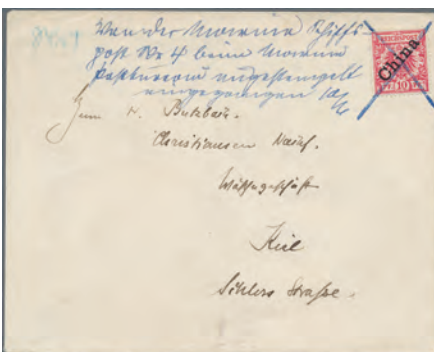 Von der Marine Schiffs-
post No 4 beim Marine
Postbureau ungestempelt
eingegangen
REICHSPOST
China
10
Herrn W. Butzbach.
Christiansen Nachf.
Wäschegeschäft
Kiel
Schloss Strasse.